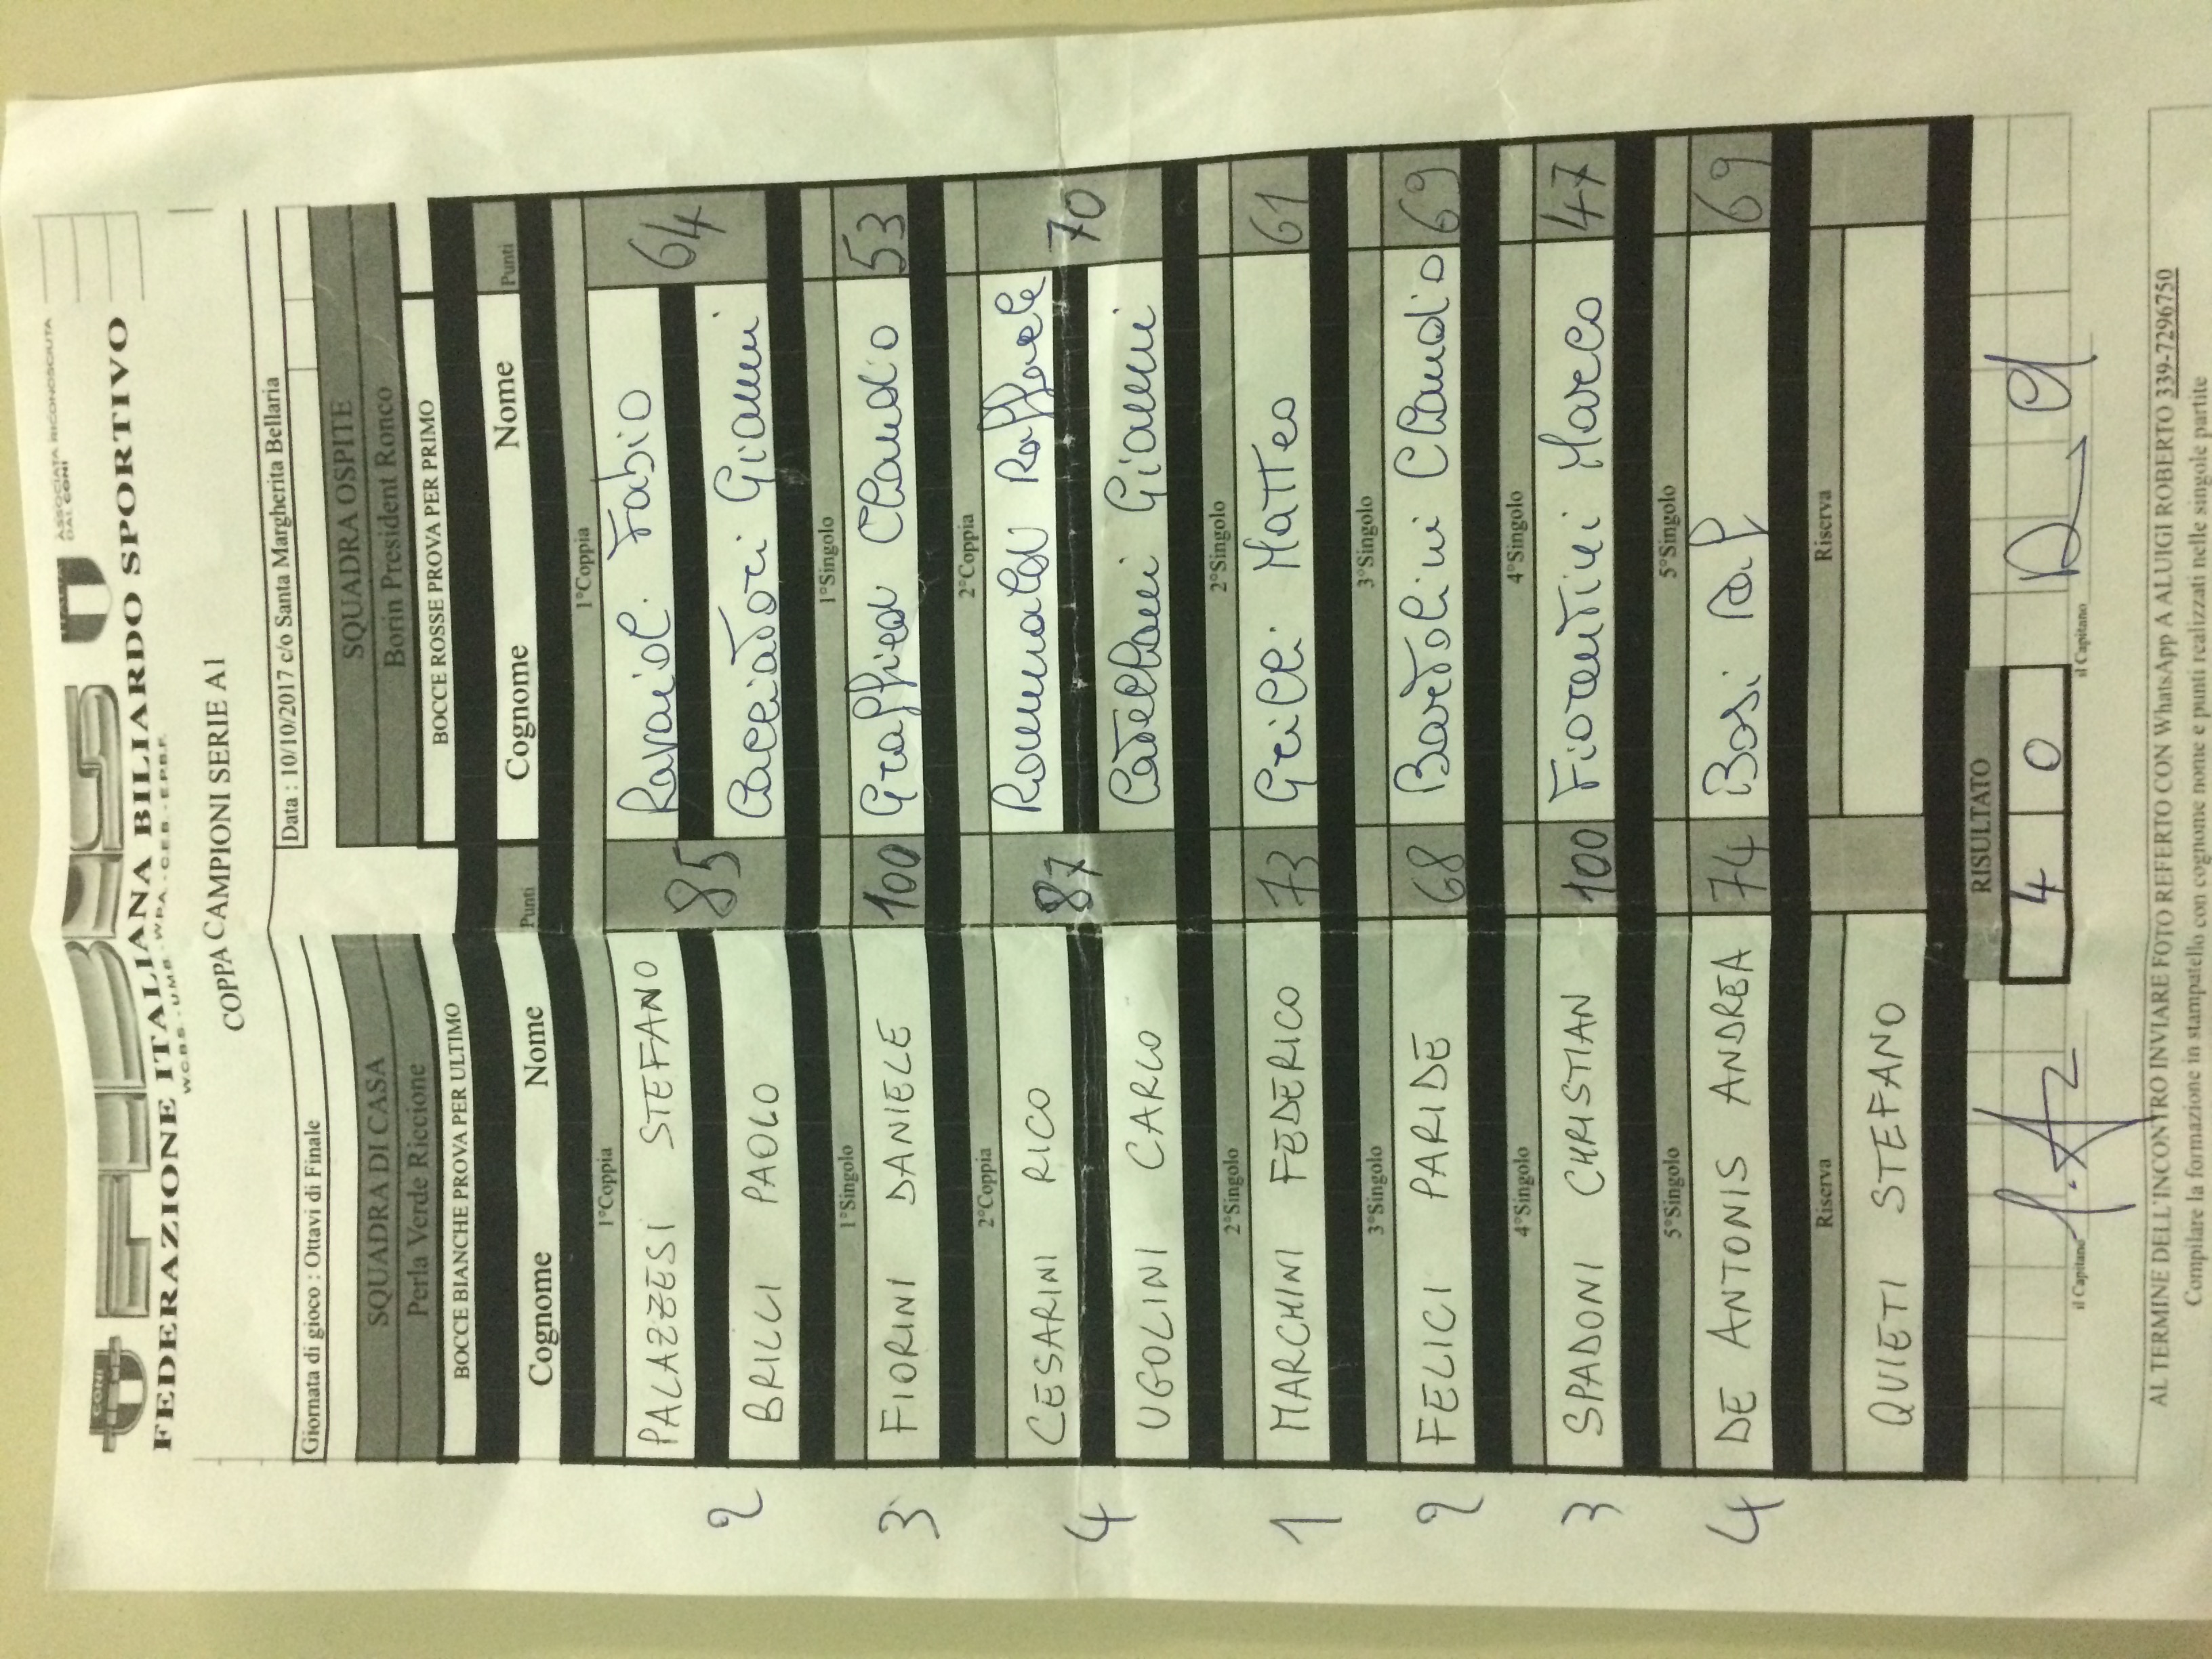 CONI
FIBiS
ITALIA
ASSOCIATA RICONOSCIUTA
DAL CONI
FEDERAZIONE ITALIANA BILIARDO SPORTIVO
W.C.B.S. - U.M.B. - W.P.A. - C.E.B. - E.P.B.F.
COPPA CAMPIONI SERIE A1
Giornata di gioco : Ottavi di Finale Data : 10/10/2017 c/o Santa Margherita Bellaria
SQUADRA DI CASA SQUADRA OSPITE
Perla Verde Riccione Borin President Ronco
BOCCE BIANCHE PROVA PER ULTIMO BOCCE ROSSE PROVA PER PRIMO
Cognome Nome Punti Cognome Nome Punti
1°Coppia 1°Coppia
PALAZZESI STEFANO Ravaioli Fabio
2 85 64
BRILLI PAOLO Cacciatori Gianni
1°Singolo 1°Singolo
3 FIORINI DANIELE 100 Graffiedi Claudio 53
2°Coppia 2°Coppia
CESARINI RICO Romualdi Raffaele
4 87 70
UGOLINI CARLO Catellani Gianni
2°Singolo 2°Singolo
1 MARCHINI FEDERICO 73 Grilli Matteo 61
3°Singolo 3°Singolo
2 FELICI PARIDE 68 Bartolini Claudio 69
4°Singolo 4°Singolo
3 SPADONI CHRISTIAN 100 Fiorentini Marco 47
5°Singolo 5°Singolo
4 DE ANTONIS ANDREA 74 Bosi 69
Riserva Riserva
QUIETI STEFANO
RISULTATO
4 0
il Capitano il Capitano
AL TERMINE DELL'INCONTRO INVIARE FOTO REFERTO CON WhatsApp A ALUIGI ROBERTO 339-7296750
Compilare la formazione in stampatello con cognome nome e punti realizzati nelle singole partite